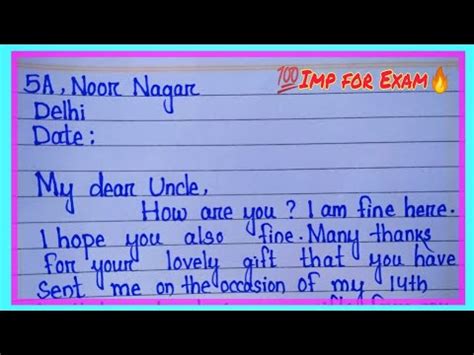 💯Imp for Exam🔥
5A, Noor Nagar
Delhi
Date:
My dear Uncle,
How are you? I am fine here.
I hope you also fine. Many thanks
for your lovely gift that you have
sent me on the occasion of my 14th